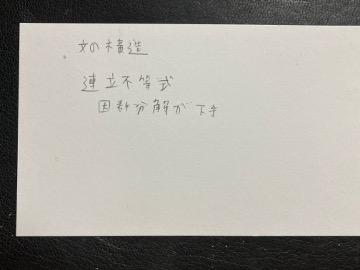 文の構造
連立不等式
因数分解が下手